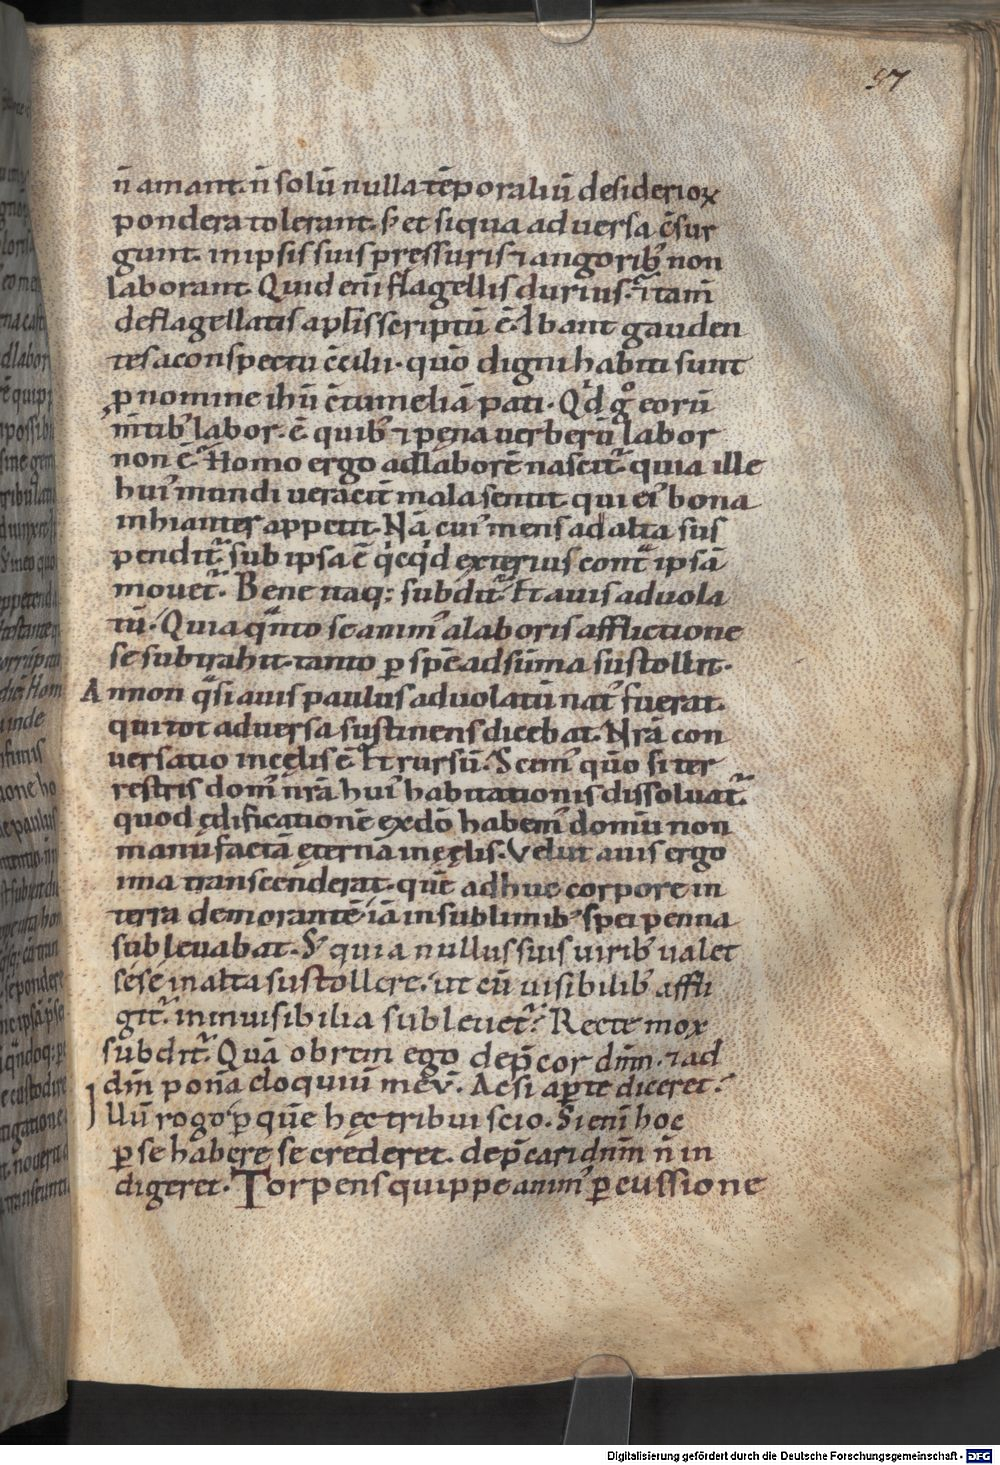 57
n̄ amant. n̄ solū nulla tēporaliū desiderioꝝ
pondera tolerant. sꝫ et siqua aduersa c̄sur
gunt. inipsis suis pressuris ⁊ angorib᾽ non
laborant. Quid enī flagellis durius. ⁊ tam̄
deflagellatis aplīs scriptū ē. Ibant gauden
tes aconspectu c̄cilii. quō digni habiti sunt
ꝑ nomine ihū c̄tumeliā pati. Qd g̊ eorū
m̄tib᾽ labor. ē. quib᾽ ⁊ pęna uerberū labor
non ē. Homo ergo adlaborē nascit᾽. quia ille
hui᾽ mundi ueracit᾽ mala sentit. qui ei᾽ bona
inhianter appetit. Nā cui᾽ mens ad alta sus
pendit᾽. sub ipsa ē qicqid exterius cont᾽ ipsā
mouet᾽. Bene itaq; subdit᾽. Et auis aduola
tū. Quia qanto se anim᾽ alaboris afflictione
se subtrahit. tanto ꝑ spē adsūma sustollit.
Annon qasi auis paulus aduolatū nat᾽ fuerat.
qui tot aduersa sustinens dicebat. Nr̄a con
uersatio incęlis ē. Et rursū. Scim᾽ qūo si ter
restris dom᾽ nr̄a hui᾽ habitationis dissoluat᾽.
quod ędificationē exdō habem᾽ domū non
manufactā ęternā incęlis. Velut auis ergo
ima transcenderat. quē adhuc corpore in
terra demorantē iā insublimib᾽ spei penna
subleuabat. Sꝫ quia nullus suis uirib᾽ ualet
sese inalta sustollere. ut cū uisibilib᾽ affli
git᾽. ininuisibilia subleuet᾽. Recte mox
subdit᾽. Quā obrem ego dep̄cor dnm̄. ⁊ ad
dm̄ ponā eloquiū meū. Acsi aꝑte diceret.
Illū rogo ꝑ quē hęc tribui scio. Si enī hoc
ꝑ se habere se crederet. dep̄cari dnm̄ n̄ in
digeret. Torpens quippe anim᾽ ꝑcussione
Digitalisierung gefördert durch die Deutsche Forschungsgemeinschaft - DFG